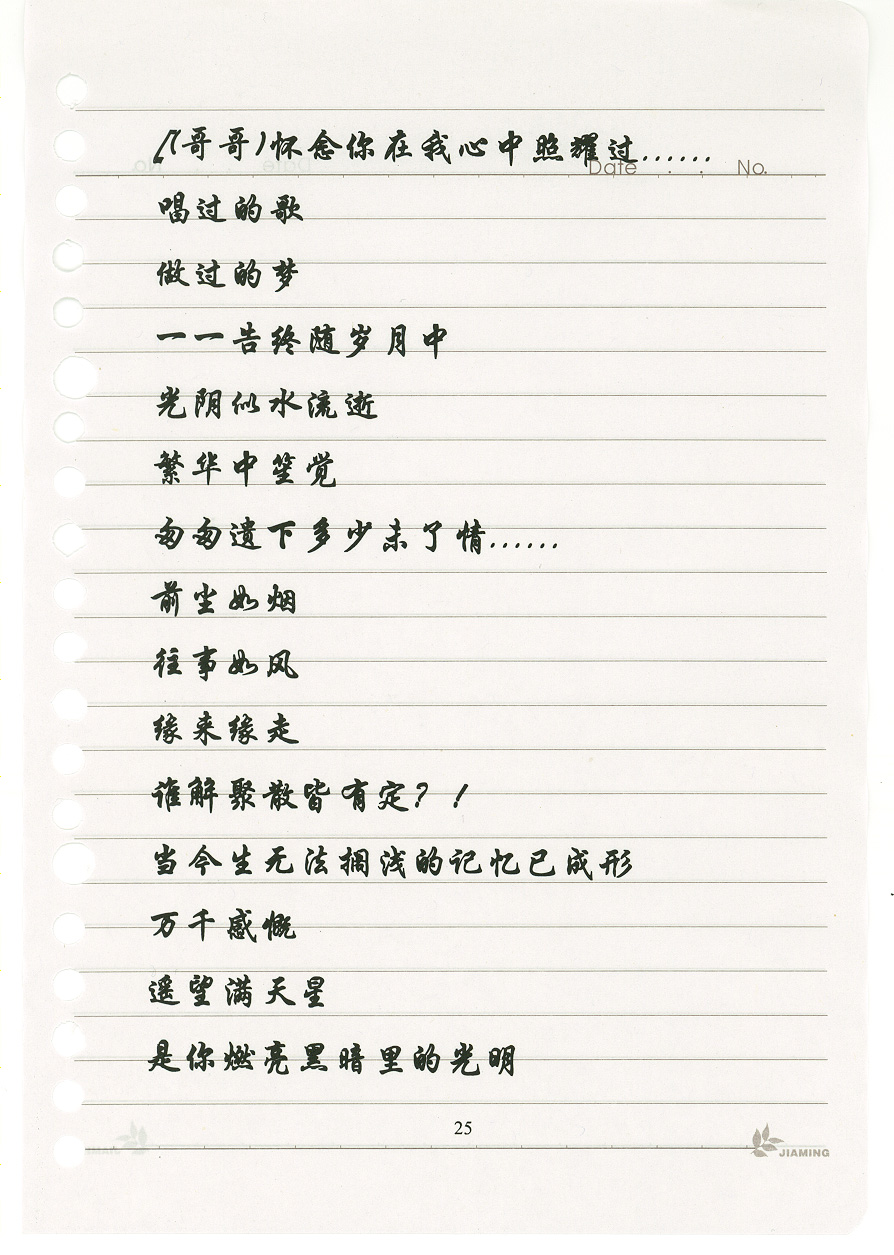 〖(哥哥)怀念你在我心中照耀过......
Date . . No.
唱过的歌
做过的梦
一一告终随岁月中
光阴似水流逝
繁华中笙觉
匆匆遗下多少未了情......
前尘如烟
往事如风
缘来缘走
谁解聚散皆有定?!
当今生无法搁浅的记忆已成形
万千感慨
遥望满天星
是你燃亮黑暗里的光明
25
JIAMING